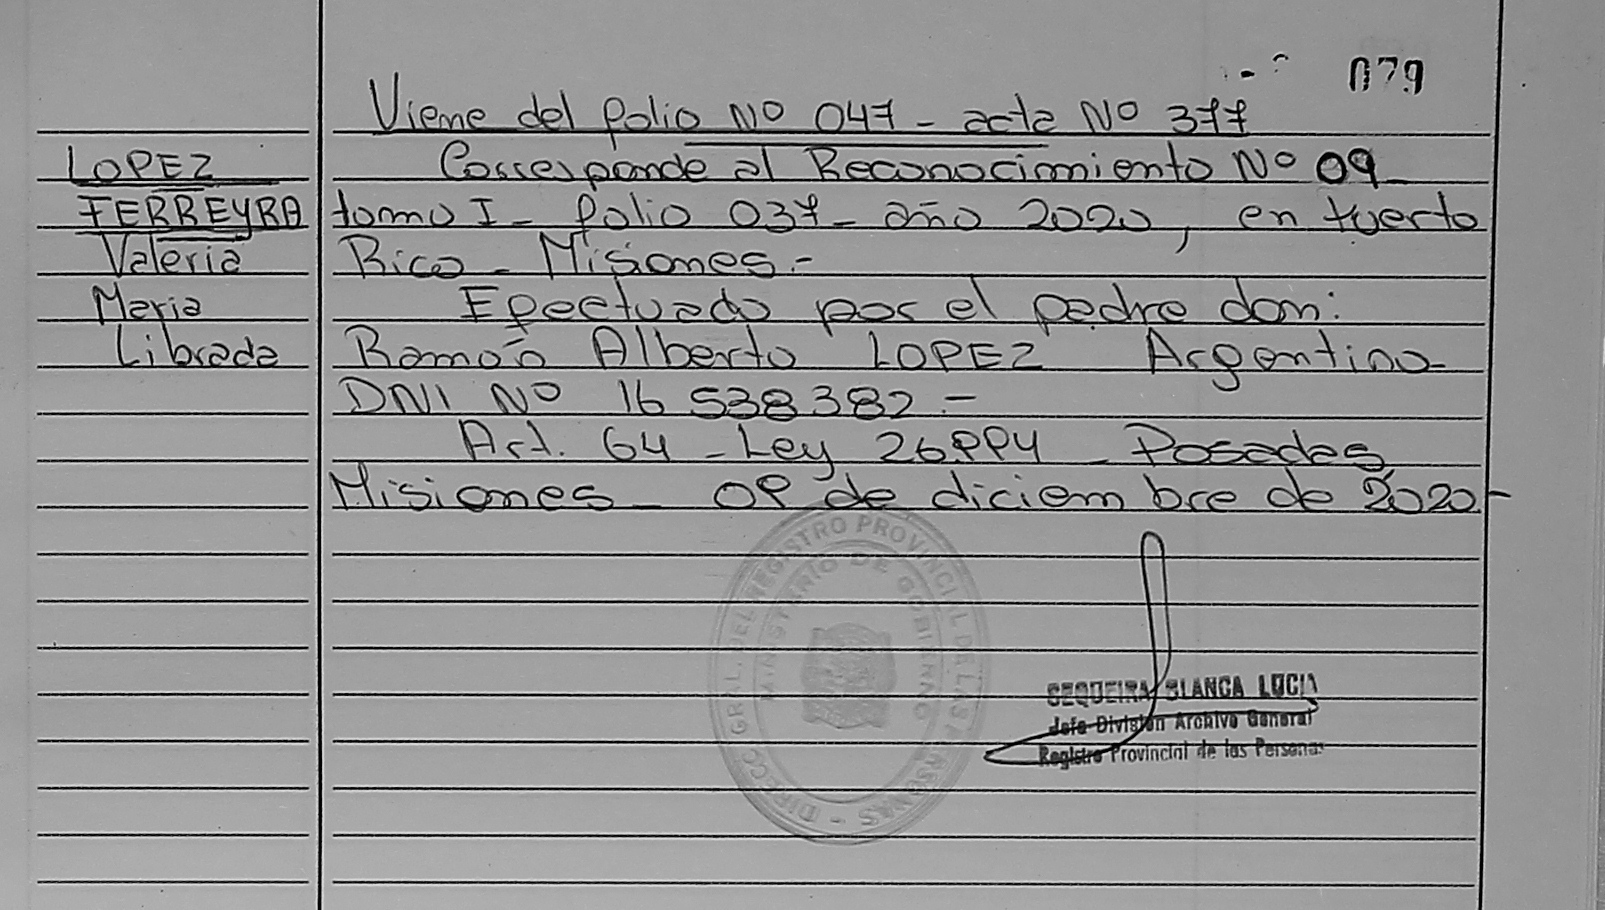 079
Viene del folio Nº 047 - acta Nº 377
LOPEZ
FERREYRA
Valeria
Maria
Librada
Corresponde al Reconocimiento Nº 09
tomo I - folio 037 - año 2020, en Puerto
Rico - Misiones.-
Efectuado por el padre don:
Ramón Alberto LOPEZ Argentino
DNI Nº 16 538382.-
Art. 64 - Ley 26994 - Posadas,
Misiones - 09 de diciembre de 2020-
DIRECC. GRAL. DEL REGISTRO PROVINCIAL DE LAS PERSONAS -
MINISTERIO DE GOBIERNO
SEQUEIRA BLANCA LUCIA
Jefe División Archivo General
Registro Provincial de las Personas